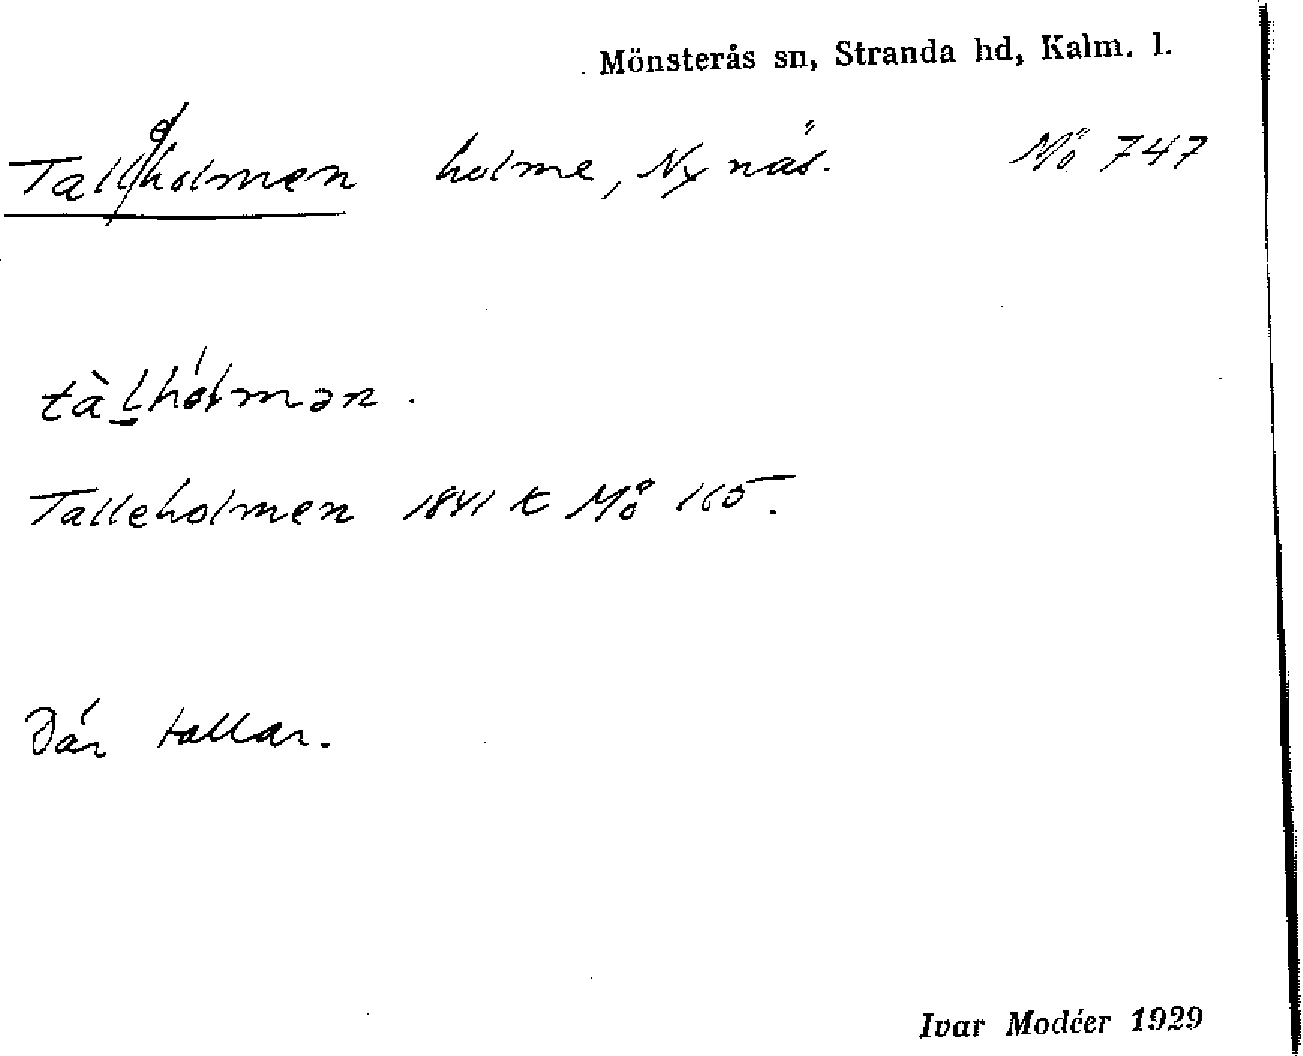 Mönsterås sn, Stranda hd, Kalm. l.
Talleholmen holme, Nynäs. Mö 747
tàḷhólmən.
Talleholmen 1841 E Mö 165.
Där tallar.
Ivar Modéer 1929